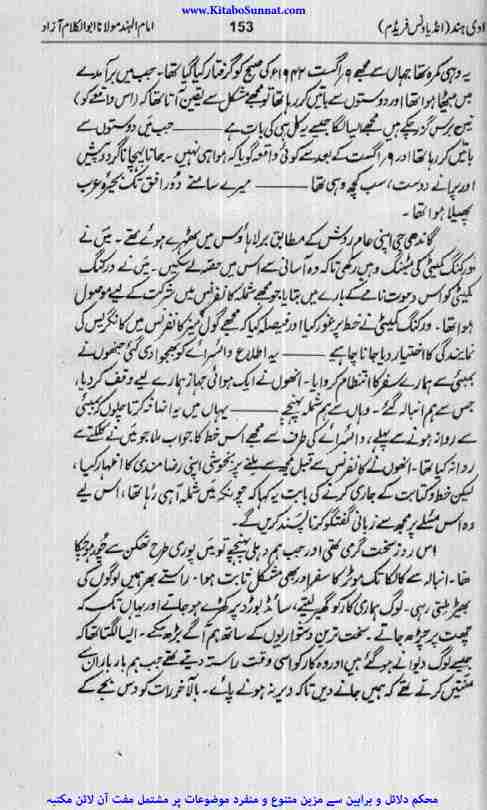 www.KitaboSunnat.com
آزادی ہند (انڈیا ونس فریڈم) 153 امام الہند مولانا ابوالکلام آزاد
یہ وہی کمرہ تھا جہاں سے مجھے ۹ اگست ۱۹۴۲ء کی صبح کو گرفتار کیا گیا تھا۔ جب میں برآمدے
میں بیٹھا ہوا تھا اور دوستوں سے باتیں کر رہا تھا تو مجھے مشکل سے یقین آتا تھا کہ (اس واقعے کو)
تین برس گزر چکے ہیں۔ مجھے ایسا لگا جیسے یہ کل ہی کی بات ہے ——— جب میں دوستوں سے
باتیں کر رہا تھا اور ۹ اگست کے بعد سے کوئی واقعہ گویا کہ ہوا ہی نہیں۔ جانا پہچانا گرد و پیش
اور پرانے دوست، سب کچھ وہی تھا ——— میرے سامنے دُور افق تک بحیرۂ عرب
پھیلا ہوا تھا۔
گاندھی جی اپنی عام روش کے مطابق برلا ہاؤس میں ٹھہرے ہوئے تھے۔ میں نے
ورکنگ کمیٹی کی میٹنگ وہیں رکھی تاکہ وہ آسانی سے اس میں حصہ لے سکیں۔ میں نے ورکنگ
کمیٹی کو اس دعوت نامے کے بارے میں بتایا جو مجھے شملہ کانفرنس میں شرکت کے لیے موصول
ہوا تھا۔ ورکنگ کمیٹی نے خط پر غور کیا اور فیصلہ کیا کہ مجھے گول میز کانفرنس میں کانگریس کی
نمایندگی کا اختیار دیا جانا چاہیے ——— یہ اطلاع وائسرائے کو بھجوا دی گئی جنھوں نے
بمبئی سے ہمارے سفر کا انتظام کروایا۔ انھوں نے ایک ہوائی جہاز ہمارے لیے وقف کر دیا،
جس سے ہم انبالہ گئے۔ وہاں سے ہم شملہ پہنچے ——— یہاں میں یہ اضافہ کرتا چلوں کہ بمبئی
سے روانہ ہونے سے پہلے، وائسرائے کی طرف سے مجھے اس خط کا جواب ملا جو میں نے کلکتے سے
روانہ کیا تھا۔ انھوں نے کانفرنس سے قبل مجھ سے ملنے پر بخوشی اپنی رضامندی کا اظہار کیا،
لیکن خط و کتابت کے جاری کرنے کی بابت یہ کہا کہ چونکہ میں شملہ آ ہی رہا تھا، اس لیے
وہ اس مسئلے پر مجھ سے زبانی گفتگو کرنا پسند کریں گے۔
اس روز سخت گرمی تھی اور جب ہم دہلی پہنچے تو میں پوری طرح تھکن سے چُور ہو چکا
تھا۔ انبالہ سے کالکا تک موٹر کا سفر اور بھی مشکل ثابت ہوا۔ راستے بھر ہمیں لوگوں کی
بھیڑ ملتی رہی۔ لوگ ہماری کار کو گھیر لیتے، سائڈ بورڈ پر کھڑے ہو جاتے اور یہاں تک کہ
چھت پر چڑھ جاتے۔ سخت ترین دشواریوں کے ساتھ ہم آگے بڑھ سکے۔ ایسا لگتا تھا کہ
جیسے لوگ دیوانے ہو گئے ہیں اور وہ کار کو اسی وقت راستہ دیتے تھے جب ہم بار بار ان سے
منتیں کرتے تھے کہ ہمیں جانے دیں تاکہ دیر نہ ہونے پائے۔ بالآخر رات کو دس بجے کے
محکم دلائل و براہین سے مزین متنوع و منفرد موضوعات پر مشتمل مفت آن لائن مکتبہ